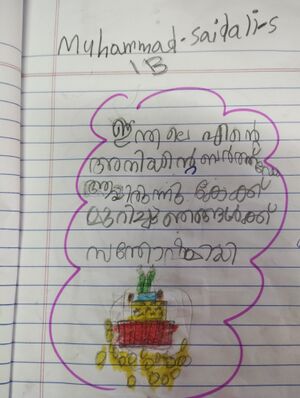 Muhammad-saidali-s
1B
ഇന്നലെ എന്റെ
അനിയന്റെ ബർത്ത്ഡേ
ആയിരുന്നു കേക്ക്
മുറിച്ചു ഞങ്ങൾക്ക്
സന്തോഷമായി